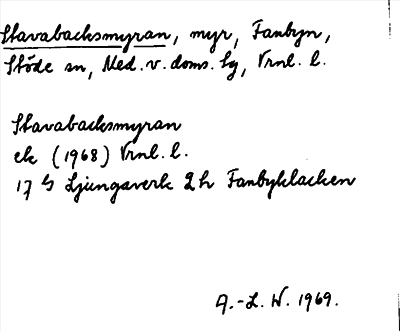 Stavabacksmyran, myr, Fanbyn,
Stöde sn, Med. v. doms. Sg, Vrnl. l.
Stavabacksmyran
ek (1968) Vrnl. l.
17 G Ljungaverk 2h Fanbyklacken
A.-L. W. 1969.